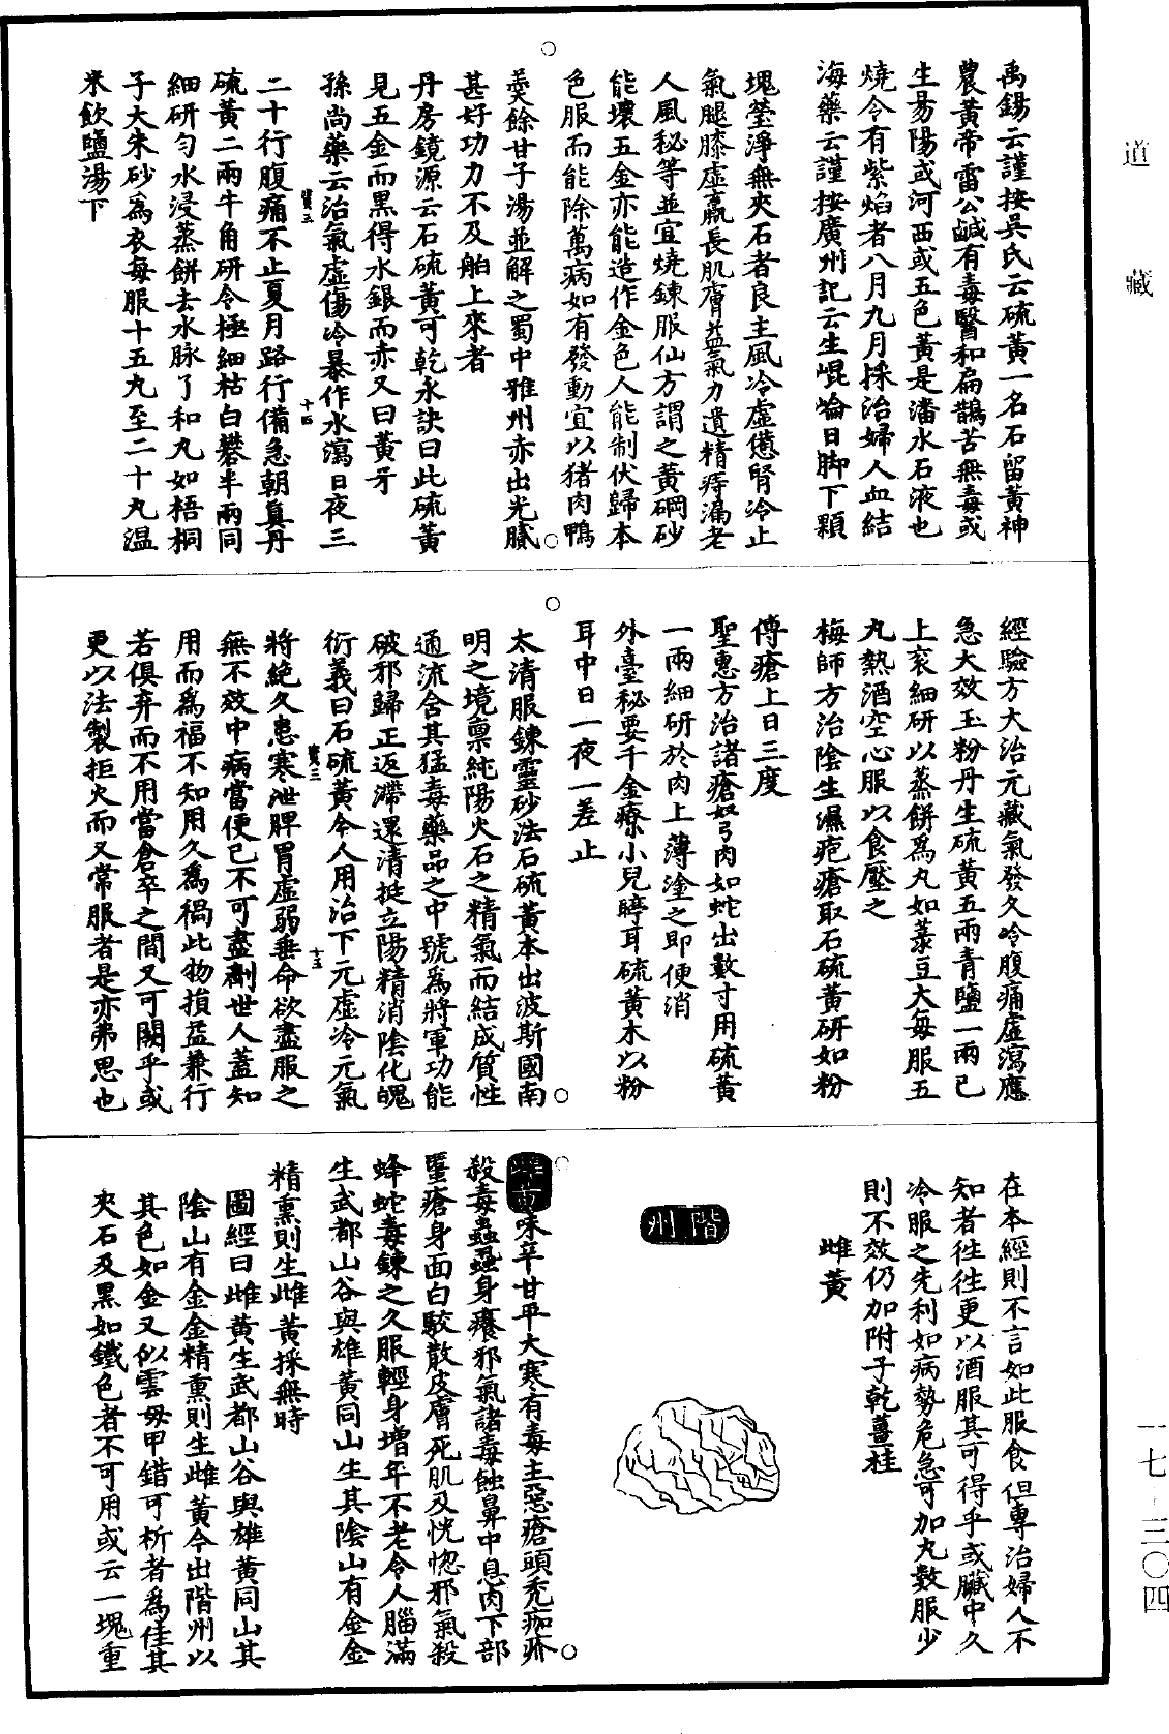 道藏
禹錫云謹按吳氏云硫黃一名石留黃神
農黃帝雷公鹹有毒醫和扁鵲苦無毒或
生易陽或河西或五色黃是潘水石液也
燒令有紫焰者八月九月採治婦人血結
海藥云謹按廣州記云生崐崘日脚下顆
塊瑩淨無夾石者良主風冷虛憊腎冷止
氣腿膝虛羸長肌膚益氣力遺精痔漏老
人風秘等並宜燒鍊服仙方謂之黃硇砂
能壞五金亦能造作金色人能制伏歸本
色服而能除萬病如有發動宜以猪肉鴨
羹餘甘子湯並解之蜀中雅州亦出光膩
甚好功力不及舶上來者
丹房鏡源云石硫黃可乾永訣曰此硫黃
見五金而黑得水銀而赤又曰黃牙
孫尚藥云治氣虛傷冷暴作水瀉日夜三
寶三
十四
二十行腹痛不止夏月路行備急朝真丹
硫黃二兩牛角研令極細枯白礬半兩同
細研勻水浸蒸餅去水脉了和丸如梧桐
子大朱砂為衣每服十五丸至二十丸温
米飲鹽湯下
經驗方大治元藏氣發久冷腹痛虛瀉應
急大效玉粉丹生硫黃五兩青鹽一兩已
上衮細研以蒸餅為丸如菉豆大每服五
丸熱酒空心服以食壓之
梅師方治陰生濕疱瘡取石硫黃研如粉
傅瘡上日三度
聖惠方治諸瘡弩肉如蛇出數寸用硫黃
一兩細研於肉上薄塗之即便消
外臺秘要千金療小兒聤耳硫黃木以粉
耳中日一夜一差止
太清服鍊靈砂法石硫黃本出波斯國南
明之境禀純陽火石之精氣而結成質性
通流含其猛毒藥品之中號為將軍功能
破邪歸正返滯還清挺立陽精消陰化魄
衍義曰石硫黃今人用治下元虛冷元氣
寶三
十五
將絕久患寒泄脾胃虛弱垂命欲盡服之
無不效中病當便已不可盡劑世人蓋知
用而為福不知用久為禍此物損益兼行
若俱弃而不用當倉卒之間又可闕乎或
更以法製拒火而又常服者是亦弗思也
在本經則不言如此服食但專治婦人不
知者往往更以酒服其可得乎或臟中久
冷服之先利如病勢危急可加丸數服少
則不效仍加附子乾薑桂
雌黃
階州
雌黃味辛甘平大寒有毒主惡瘡頭秃痂疥
殺毒蟲蝨身癢邪氣諸毒蝕鼻中息肉下部
䘌瘡身面白駮散皮膚死肌及恍惚邪氣殺
蜂蛇毒鍊之久服輕身增年不老令人腦滿
生武都山谷與雄黃同山生其陰山有金金
精熏則生雌黃採無時
圖經曰雌黃生武都山谷與雄黃同山其
陰山有金金精熏則生雌黃今出階州以
其色如金又似雲母甲錯可析者為佳其
夾石及黑如鐵色者不可用或云一塊重
一七·三〇四